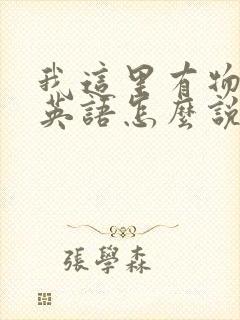 我這里有物
英語怎麼說
張學森